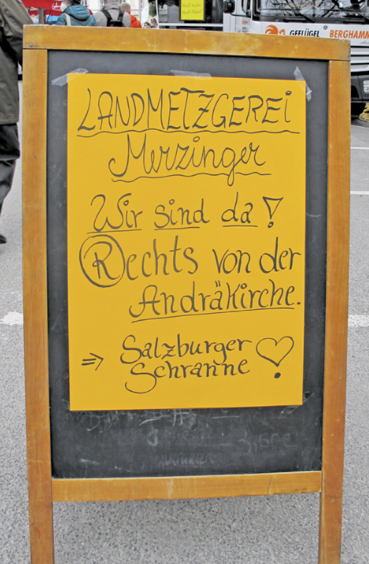 GEFLÜGEL BERGHAMM
LANDMETZGEREI
Merzinger
Wir sind da!
Rechts von der
Andräkirche.
⇒ Salzburger
Schranne!